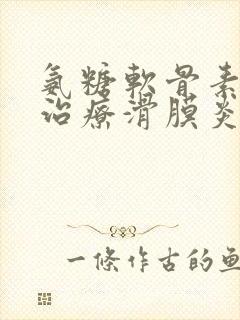 氨糖軟骨素
治療滑膜炎
一條作古的魚